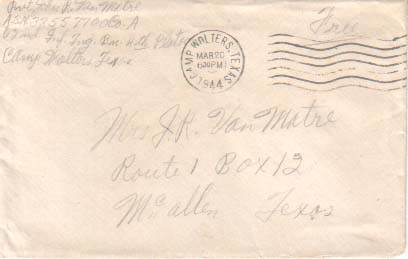 Pvt. John R. Van Matre
A.S.N. 38557700 Co. A
Inf. Trng. Bn. 4th Plat.
Camp Wolters, Texas
Free
CAMP WOLTERS, TEXAS
MAR 20
630 PM
1944
Mrs J. R. Van Matre
Route 1 Box 12
McAllen Texas